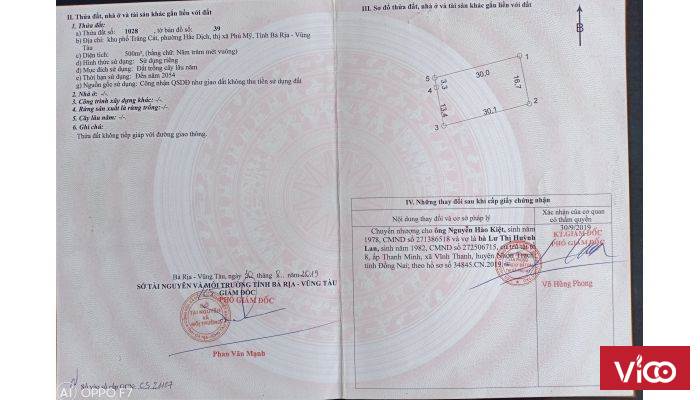 II. Thửa đất, nhà ở và tài sản khác gắn liền với đất
1. Thửa đất:
a) Thửa đất số: 1028 , tờ bản đồ số: 39
b) Địa chỉ: khu phố Trảng Cát, phường Hắc Dịch, thị xã Phú Mỹ, Tỉnh Bà Rịa - Vũng
Tàu
c) Diện tích: 500m², (bằng chữ: Năm trăm mét vuông)
d) Hình thức sử dụng: Sử dụng riêng
đ) Mục đích sử dụng: Đất trồng cây lâu năm
e) Thời hạn sử dụng: Đến năm 2054
g) Nguồn gốc sử dụng: Công nhận QSDĐ như giao đất không thu tiền sử dụng đất
2. Nhà ở: -/-
3. Công trình xây dựng khác: -/-
4. Rừng sản xuất là rừng trồng: -/-
5. Cây lâu năm: -/-
6. Ghi chú:
Thửa đất không tiếp giáp với đường giao thông.
Bà Rịa - Vũng Tàu, ngày 30 tháng 8 năm 2019
SỞ TÀI NGUYÊN VÀ MÔI TRƯỜNG TỈNH BÀ RỊA - VŨNG TÀU
GIÁM ĐỐC
PHÓ GIÁM ĐỐC
SỞ
TÀI NGUYÊN
VÀ
MÔI TRƯỜNG
Phan Văn Mạnh
AI OPPO F7
III. Sơ đồ thửa đất, nhà ở và tài sản khác gắn liền với đất
B
1
30,0
5
3,3
4
16,7
13,4
2
30,1
3
IV. Những thay đổi sau khi cấp giấy chứng nhận
Nội dung thay đổi và cơ sở pháp lý
Xác nhận của cơ quan
có thẩm quyền
Chuyển nhượng cho ông Nguyễn Hào Kiệt, sinh năm
1978, CMND số 271386518 và vợ là bà Lư Thị Huỳnh
Lan, sinh năm 1982, CMND số 272506715, cư trú tại tổ
8, ấp Thanh Minh, xã Vĩnh Thanh, huyện Nhơn Trạch,
tỉnh Đồng Nai; theo hồ sơ số 34845.CN.2019.
30/9/2019
KT.GIÁM ĐỐC
PHÓ GIÁM ĐỐC
Võ Hồng Phong
Vicoo